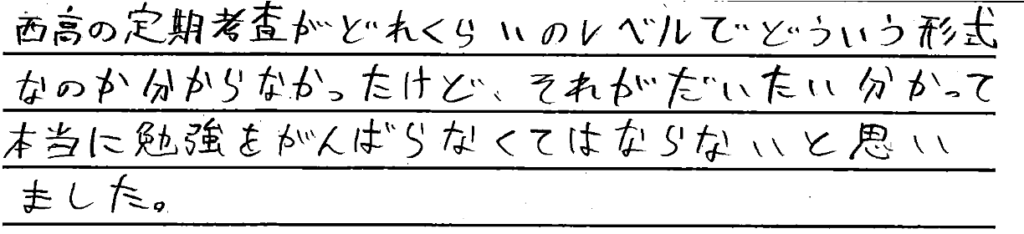 西高の定期考査がどれくらいのレベルでどういう形式
なのか分からなかったけど、それがだいたい分かって
本当に勉強をがんばらなくてはならないと思い
ました。